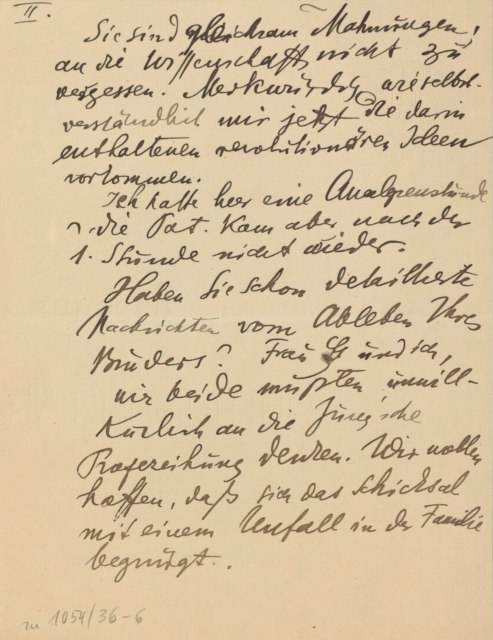 II.
Sie sind gleichsam Mahnungen,
an die Wissenschaft nicht zu
vergessen. Merkwürdig wie selbst-
verständlich mir jetzt die darin
enthaltenen revolutionären Ideen
vorkommen.
Ich hatte hier eine Analysenstunde
die Pat. kam aber nach der
1. Stunde nicht wieder.
Haben Sie schon detaillierte
Nachrichten vom Ableben Ihres
Bruders? Frau G und ich,
wir beide mußten unwill-
kürlich an die Jung'sche
denken. Wir wollen
hoffen, daß sich das Schicksal
mit einem Unfall in der Familie
begnügt.
zu 1054/36-6